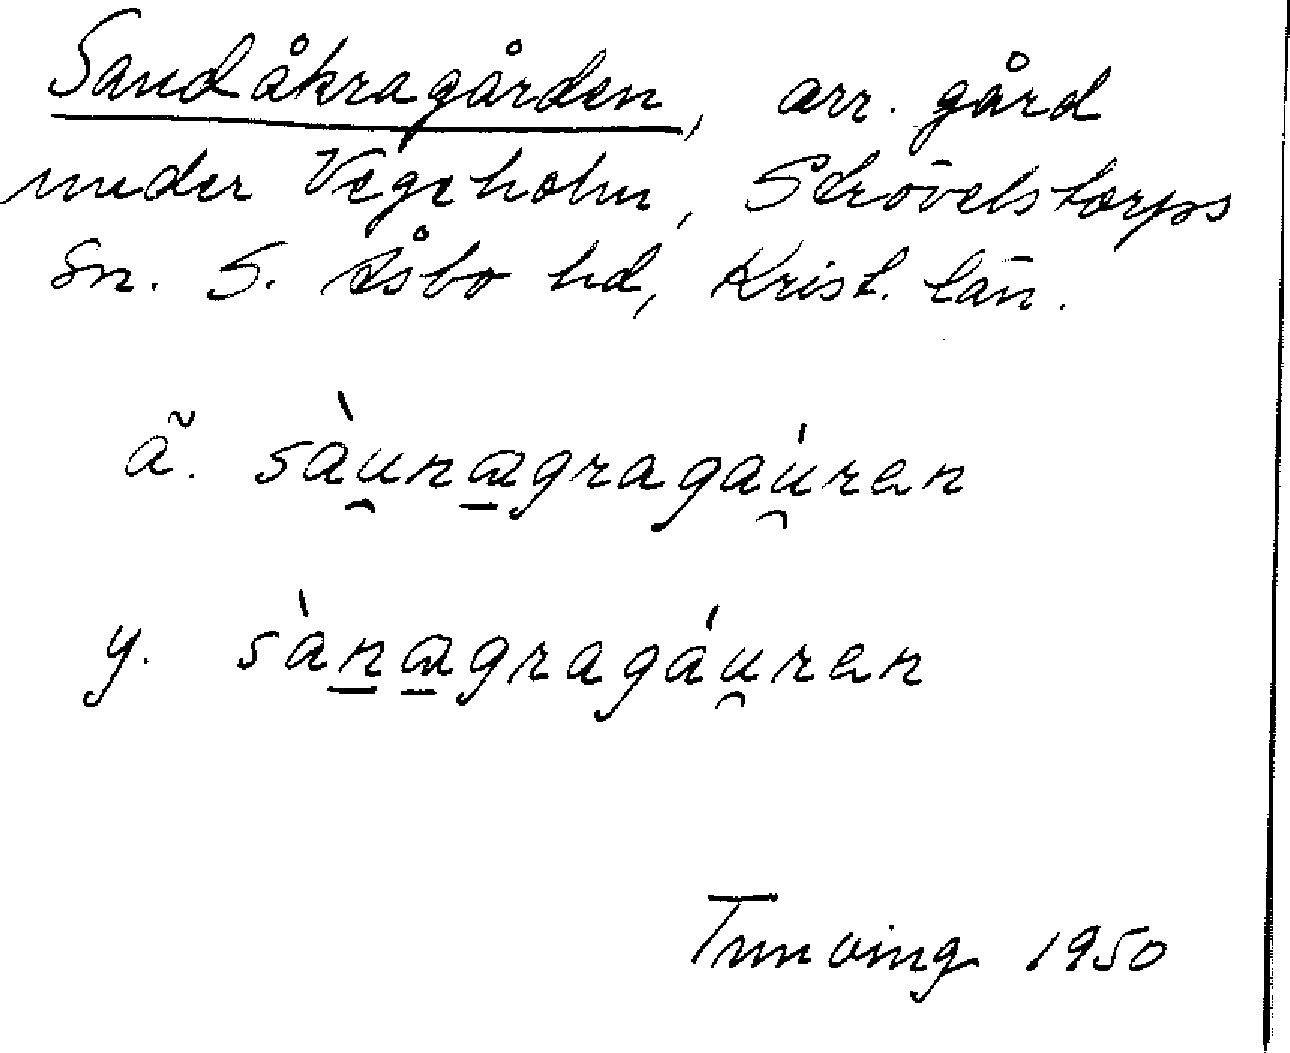 Sandåkragården, arr. gård
under Vegeholm, Strövelstorps
sn. S. Åsbo hd, Krist. län.
ä. sàu̯na̲gragáu̯ren
y. sàn̲a̲gragáu̯ren
Tunving 1950